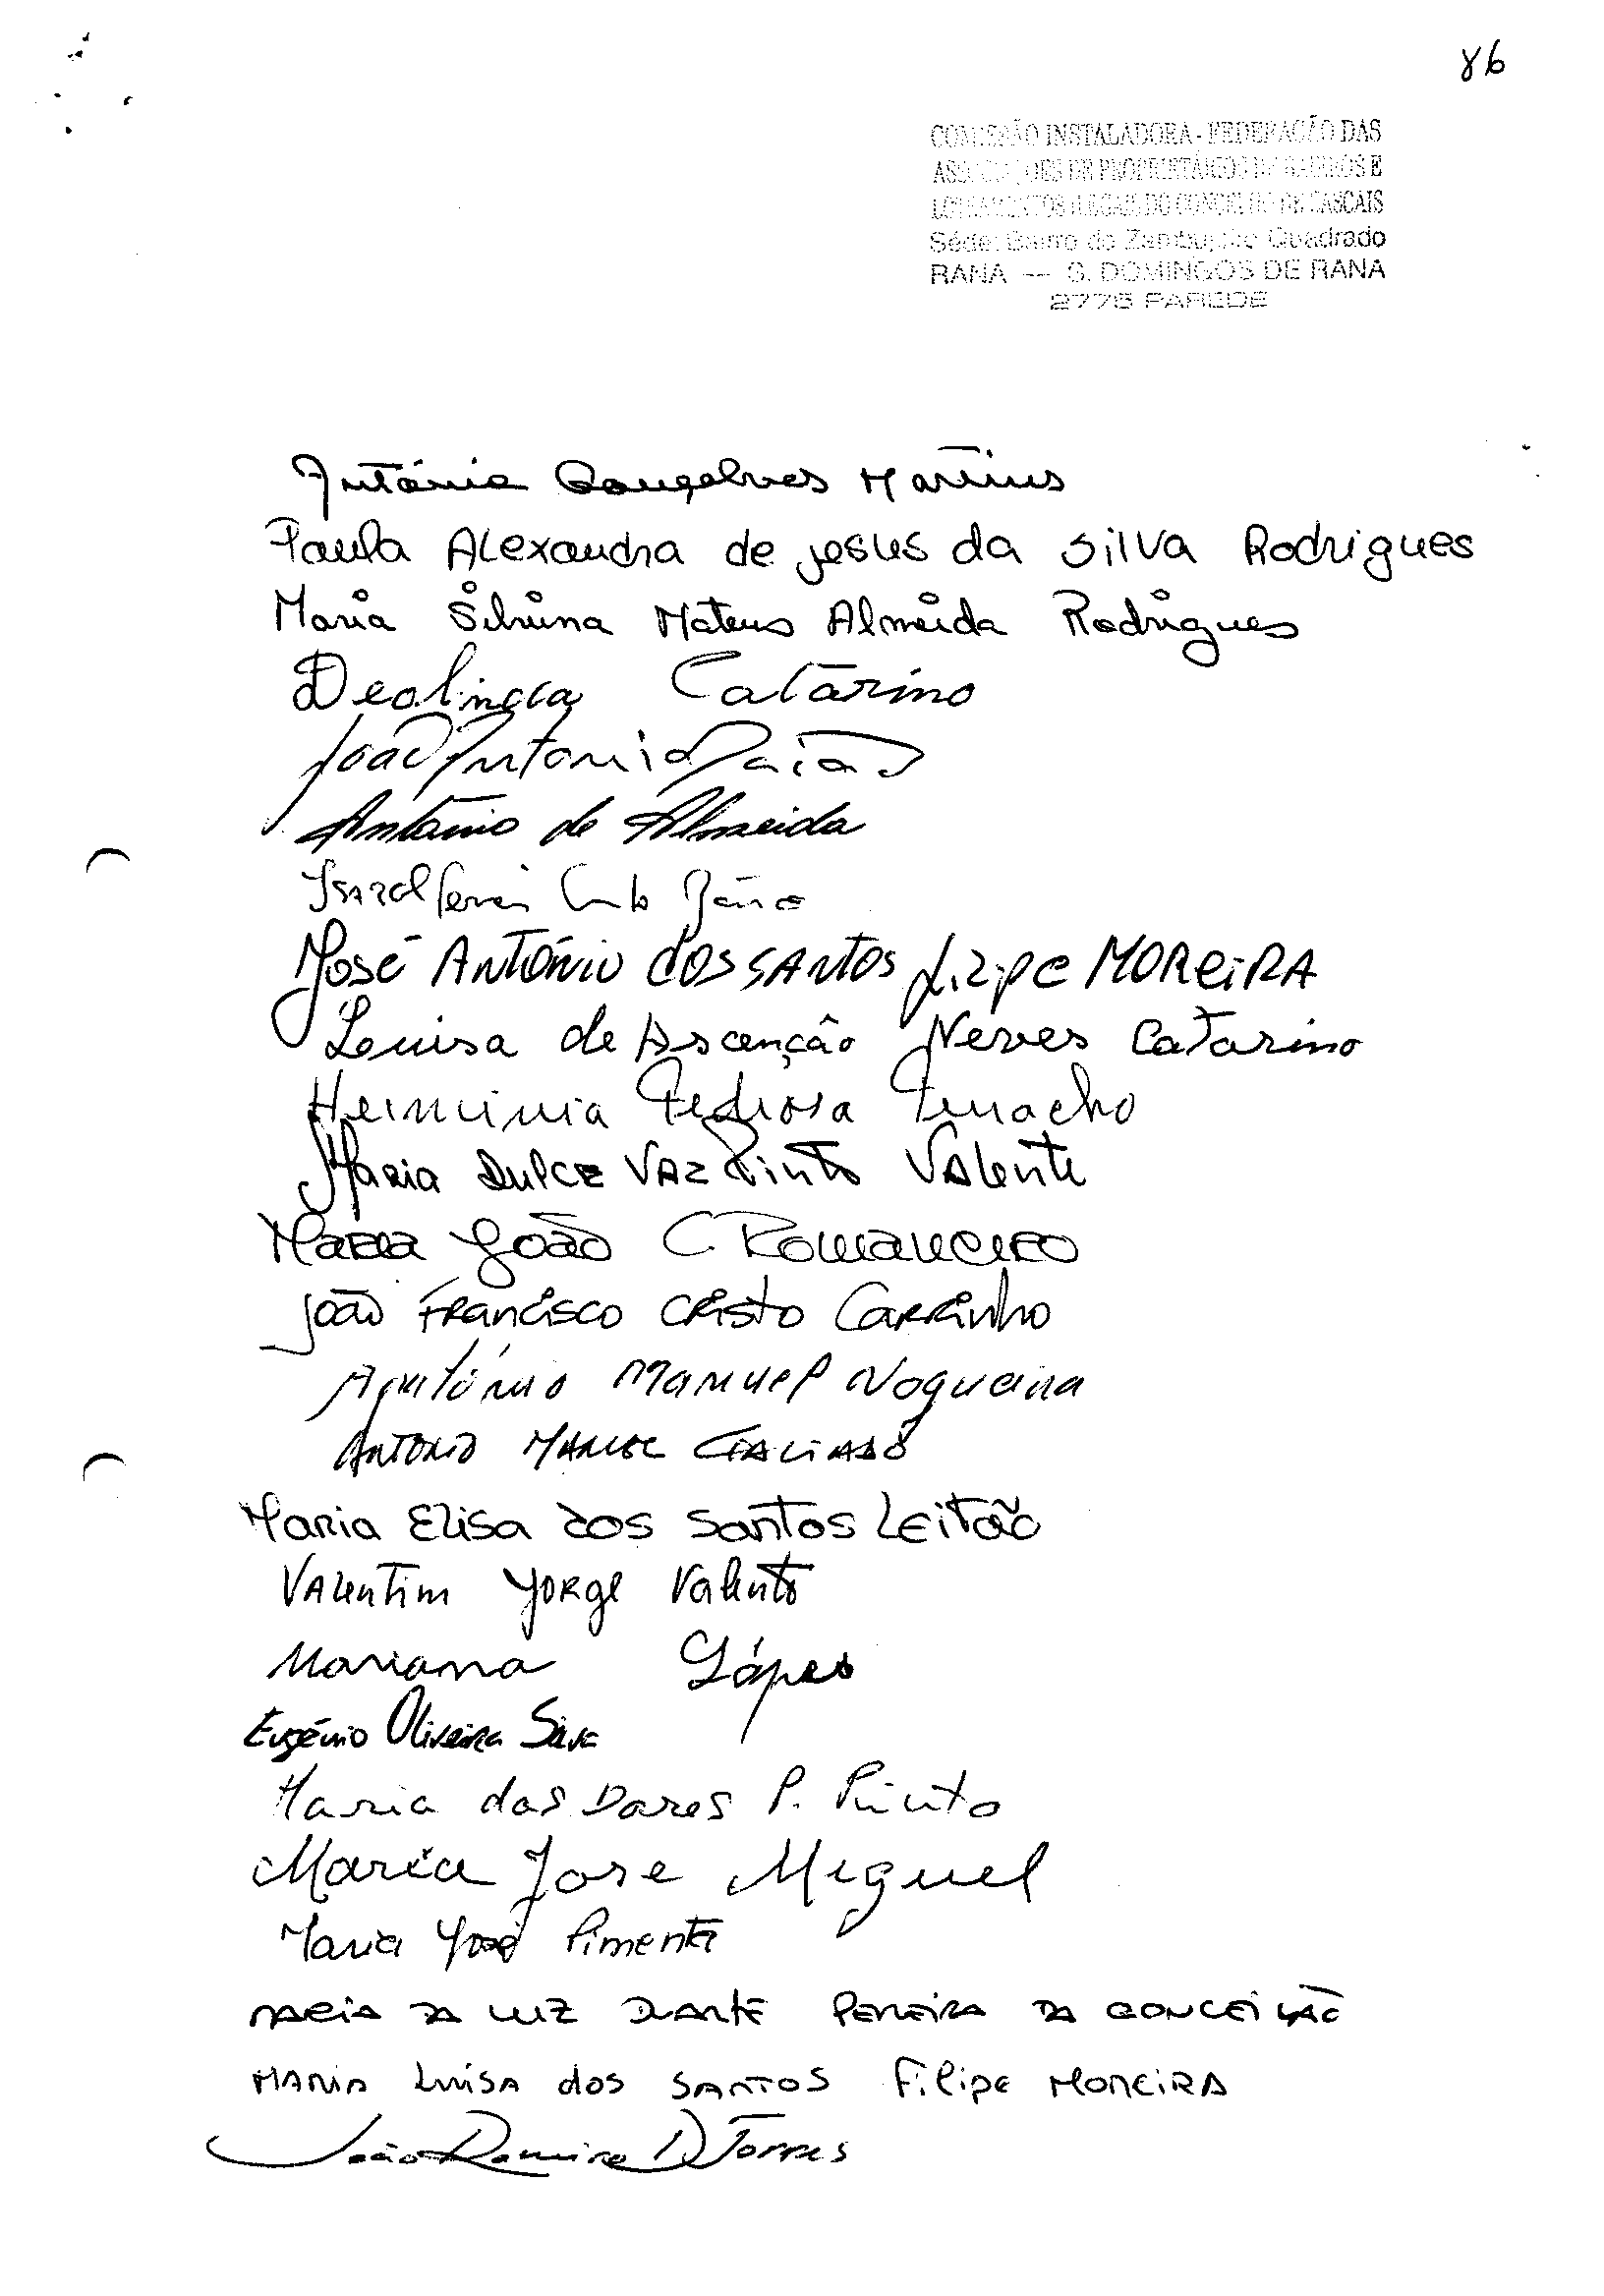 86
COMISSÃO INSTALADORA - FEDERAÇÃO DAS
ASSOCIAÇÕES DE PROPRIETÁRIOS DE BAIRROS E
LOTEAMENTOS ILEGAIS DO CONCELHO DE CASCAIS
Séde: Bairro do Zambujeiro Quadrado
RANA — S. DOMINGOS DE RANA
2775 PAREDE
António Gonçalves Martins
Paula Alexandra de jesus da Silva Rodrigues
Maria Silvina Mateus Almeida Rodrigues
Deolinda Catarino
João Antonio
António de Almeida
José António dos Santos Filipe Moreira
Luisa de Ascenção Neves Catarino
Herminia Pedrosa
Maria Dulce Vaz Pinto Valente
Maria João C Romanceiro
João Francisco Cristo Carrinho
António Manuel Nogueira
António Manuel
Maria Elisa dos Santos Leitão
Valentim Jorge Valente
Mariana Lópes
Eugénio Oliveira Silva
Maria das Dores P. Pinto
Maria Jose Miguel
Maria José Pimenta
MARIA DA LUZ DUARTE PEREIRA DA CONCEIÇÃO
MARIA Luísa dos SANTOS Filipe MOREIRA
João Ramiro D. Torres